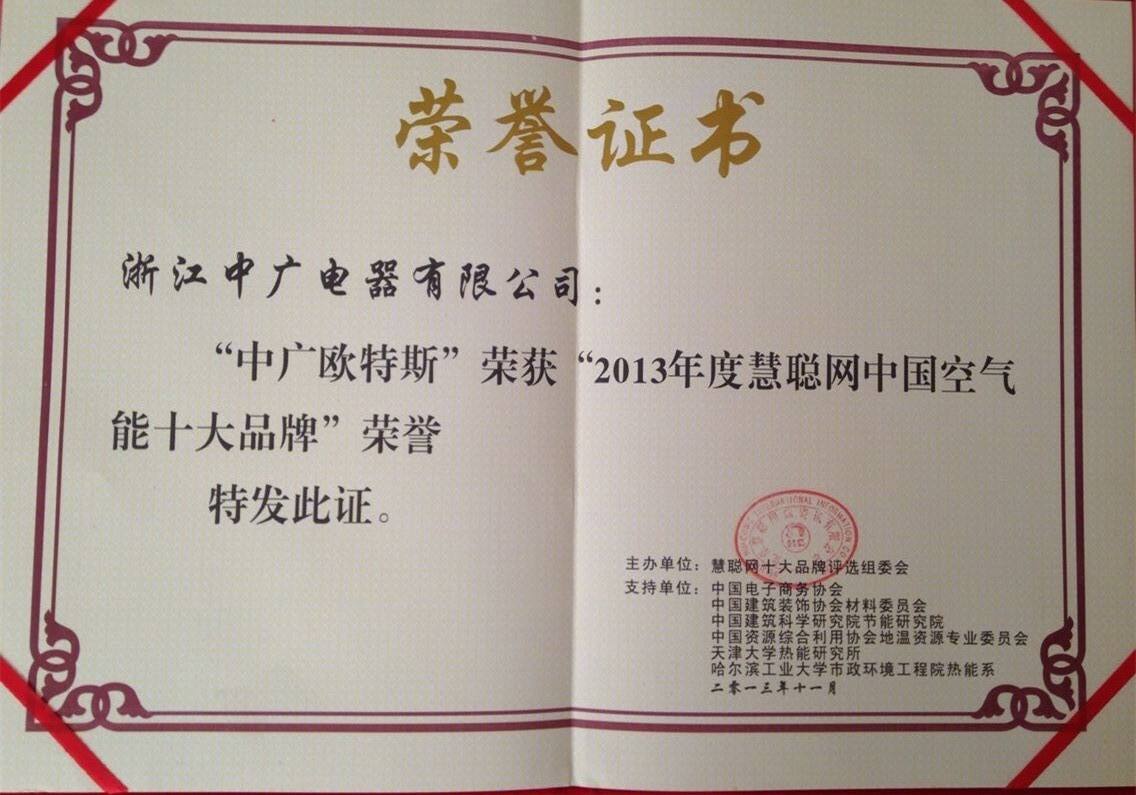 荣誉证书
浙江中广电器有限公司：
“中广欧特斯”荣获“2013年度慧聪网中国空气
能十大品牌”荣誉
特发此证。
主办单位：慧聪网十大品牌评选组委会
支持单位：中国电子商务协会
中国建筑装饰协会材料委员会
中国建筑科学研究院节能研究院
中国资源综合利用协会地温资源专业委员会
天津大学热能研究所
哈尔滨工业大学市政环境工程院热能系
二零一三年十一月
INTERNATIONAL INFORMATION CO